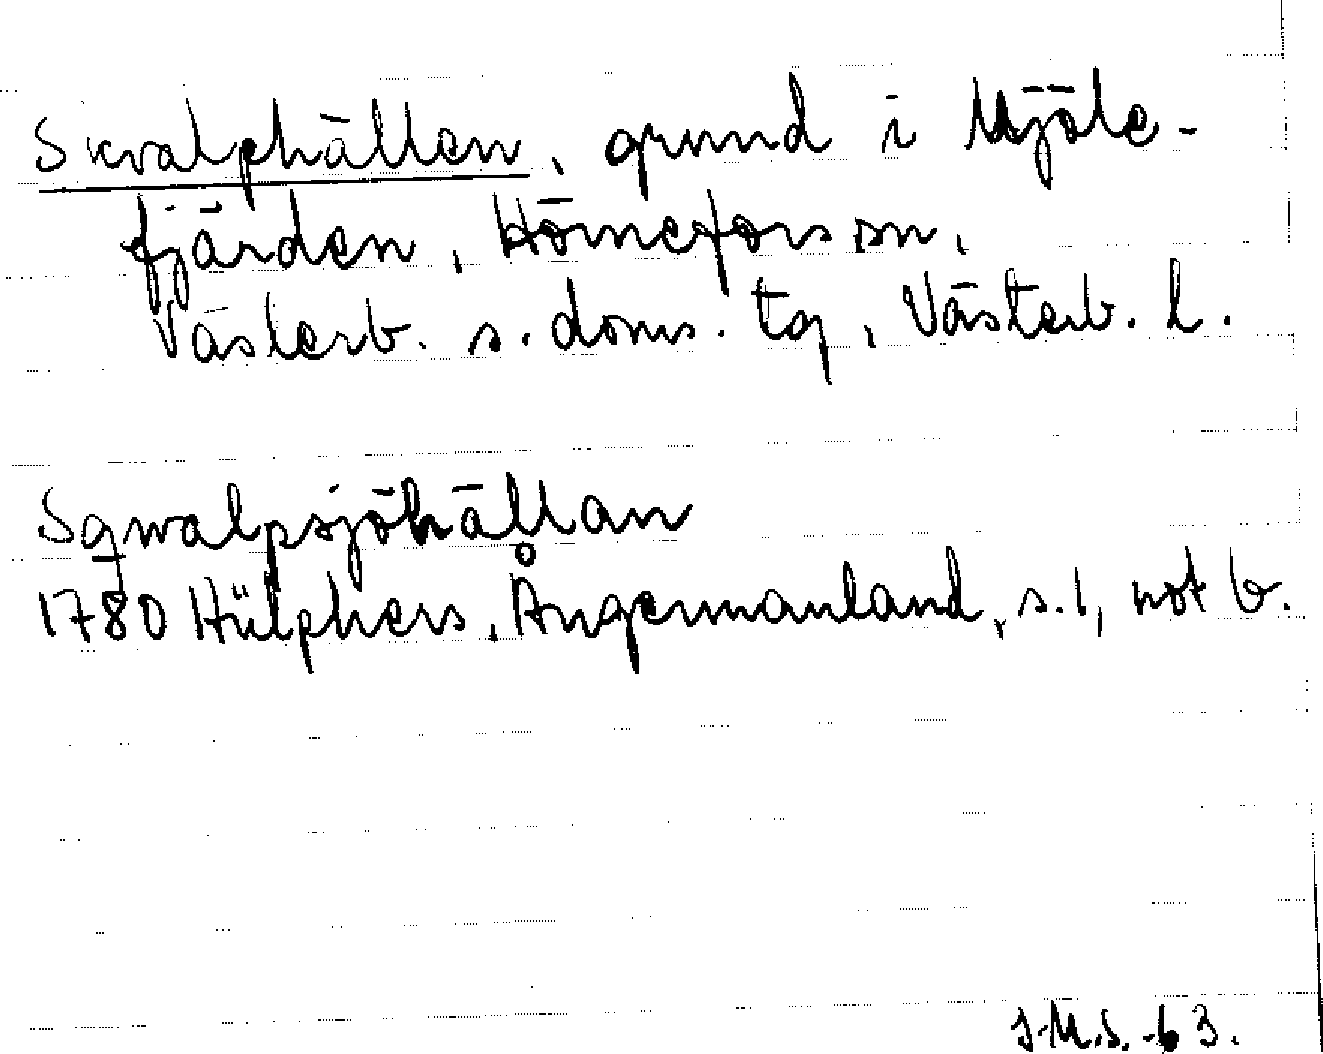 Skvalphällen, grund i Mjöle-
fjärden, Hörnefors sn,
Västerb. s. doms. tg, Västerb. l.
Sqwalpsjöhällan
1780 Hülphers, Ångermanland, s. 1, not b.
J.M.S. -63.